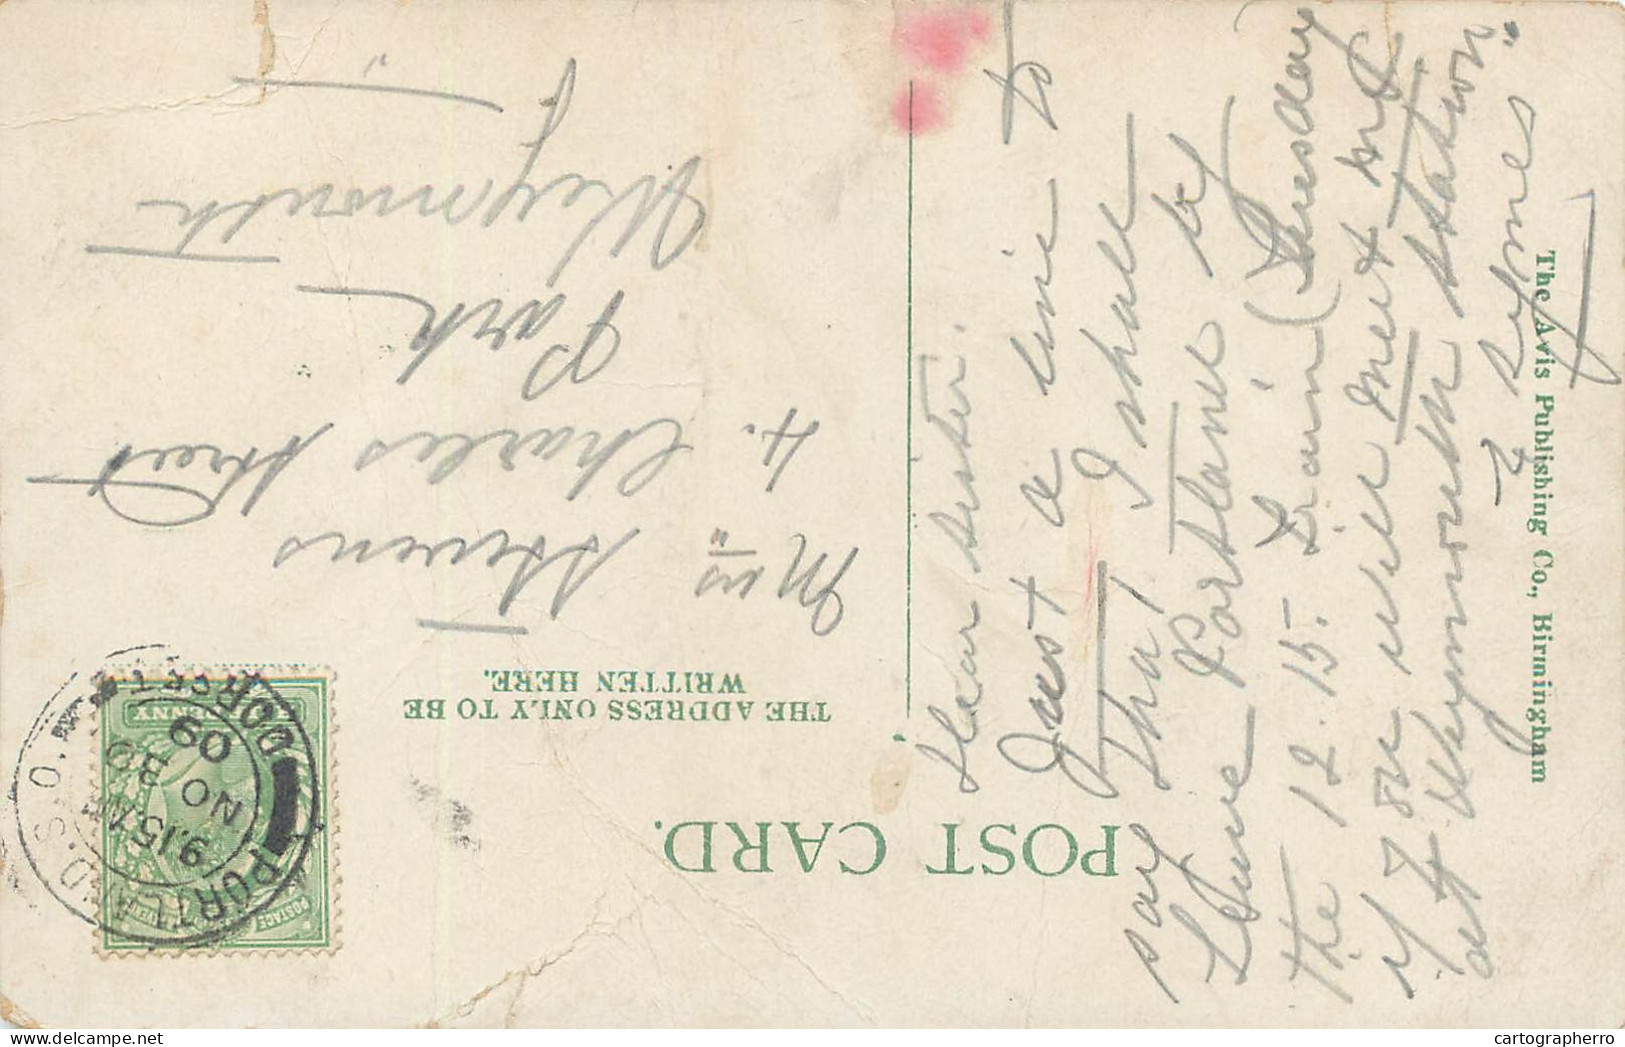 POST CARD.
The Avis Publishing Co., Birmingham
THE ADDRESS ONLY TO BE
WRITTEN HERE.
Dear Sister.
Just a line to
say that I shall
leave Portland by
the 12.15. Train (Thursday
if you will meet me
at Weymouth station
Mrs Stevens
4. Charles Street
Park
Weymouth
PORTLAND. S.O.
DORSET
9.15 AM
NO
09
POSTAGE
PENNY
cartographerro